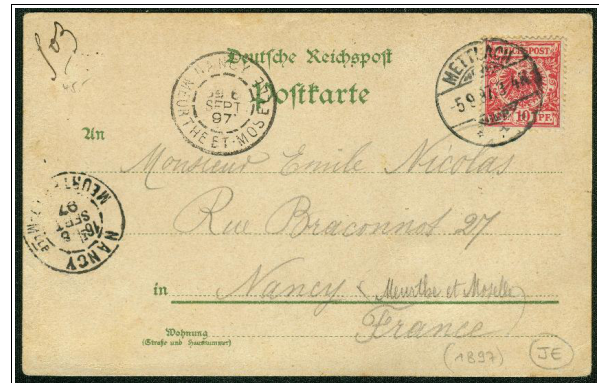 503
Deutsche Reichspost
Postkarte
NANCY
MEURTHE-ET-MOSELLE
6
SEPT
97
METTLACH
5 9 97
REICHSPOST
10 PF.
An
Monsieur Emile Nicolas
Rue Braconnot 27
NANCY
MEURT
SEPT
97
in Nancy (Meurthe et Moselle)
France
Wohnung
(Straße und Hausnummer)
(1897) JE